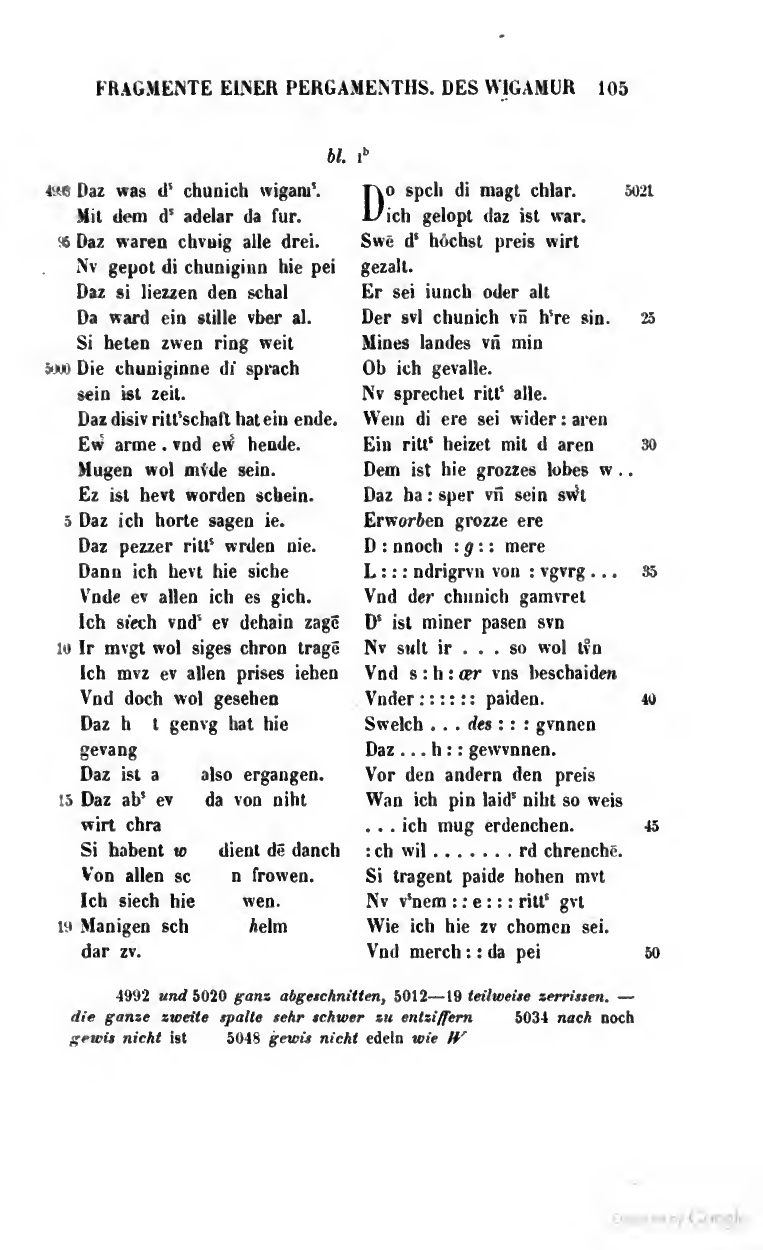 FRAGMENTE EINER PERGAMENTHS. DES WIGAMUR 105
bl. 1ᵇ
4993 Daz was dˢ chunich wigamˢ.
Mit dem dˢ adelar da fur.
95 Daz waren chvnig alle drei.
Nv gepot di chuniginn hie pei
Daz si liezzen den schal
Da ward ein stille vber al.
Si heten zwen ring weit
5000 Die chuniginne di sprach
sein ist zeit.
Daz disiv rittˢschaft hat ein ende.
Ew̉ arme . vnd ew̉ hende.
Mugen wol mv̊de sein.
Ez ist hevt worden schein.
5 Daz ich horte sagen ie.
Daz pezzer rittˢ wrden nie.
Dann ich hevt hie siche
Vnde ev allen ich es gich.
Ich siech vndˢ ev dehain zagē
10 Ir mvgt wol siges chron tragē
Ich mvz ev allen prises iehen
Vnd doch wol gesehen
Daz h t genvg hat hie
gevang
Daz ist a also ergangen.
15 Daz abˢ ev da von niht
wirt chra
Si habent w dient dē danch
Von allen sc n frowen.
Ich siech hie wen.
19 Manigen sch helm
dar zv.
Do spch di magt chlar. 5021
Dich gelopt daz ist war.
Swē dˢ hôchst preis wirt
gezalt.
Er sei iunch oder alt
Der svl chunich vn̄ hˢre sin. 25
Mines landes vn̄ min
Ob ich gevalle.
Nv sprechet rittˢ alle.
Wem di ere sei wider : aren
Ein rittˢ heizet mit d aren 30
Dem ist hie grozzes lobes w . .
Daz ha : sper vn̄ sein sw̉t
Erworben grozze ere
D : nnoch : g : : mere
L : : : ndrigrvn von : vgvrg . . . 35
Vnd der chunich gamvret
Dˢ ist miner pasen svn
Nv sult ir . . . so wol tv̊n
Vnd s : h : ær vns beschaiden
Vnder : : : : : : paiden. 40
Swelch . . . des : : : gvnnen
Daz . . . h : : gewvnnen.
Vor den andern den preis
Wan ich pin laidˢ niht so weis
. . . ich mug erdenchen. 45
: ch wil . . . . . . . rd chrenchē.
Si tragent paide hohen mvt
Nv vˢnem : : e : : : rittˢ gvt
Wie ich hie zv chomen sei.
Vnd merch : : da pei 50
4992 und 5020 ganz abgeschnitten, 5012—19 teilweise zerrissen. —
die ganze zweite spalte sehr schwer zu entziffern 5034 nach noch
gewis nicht ist 5048 gewis nicht edeln wie W
Google